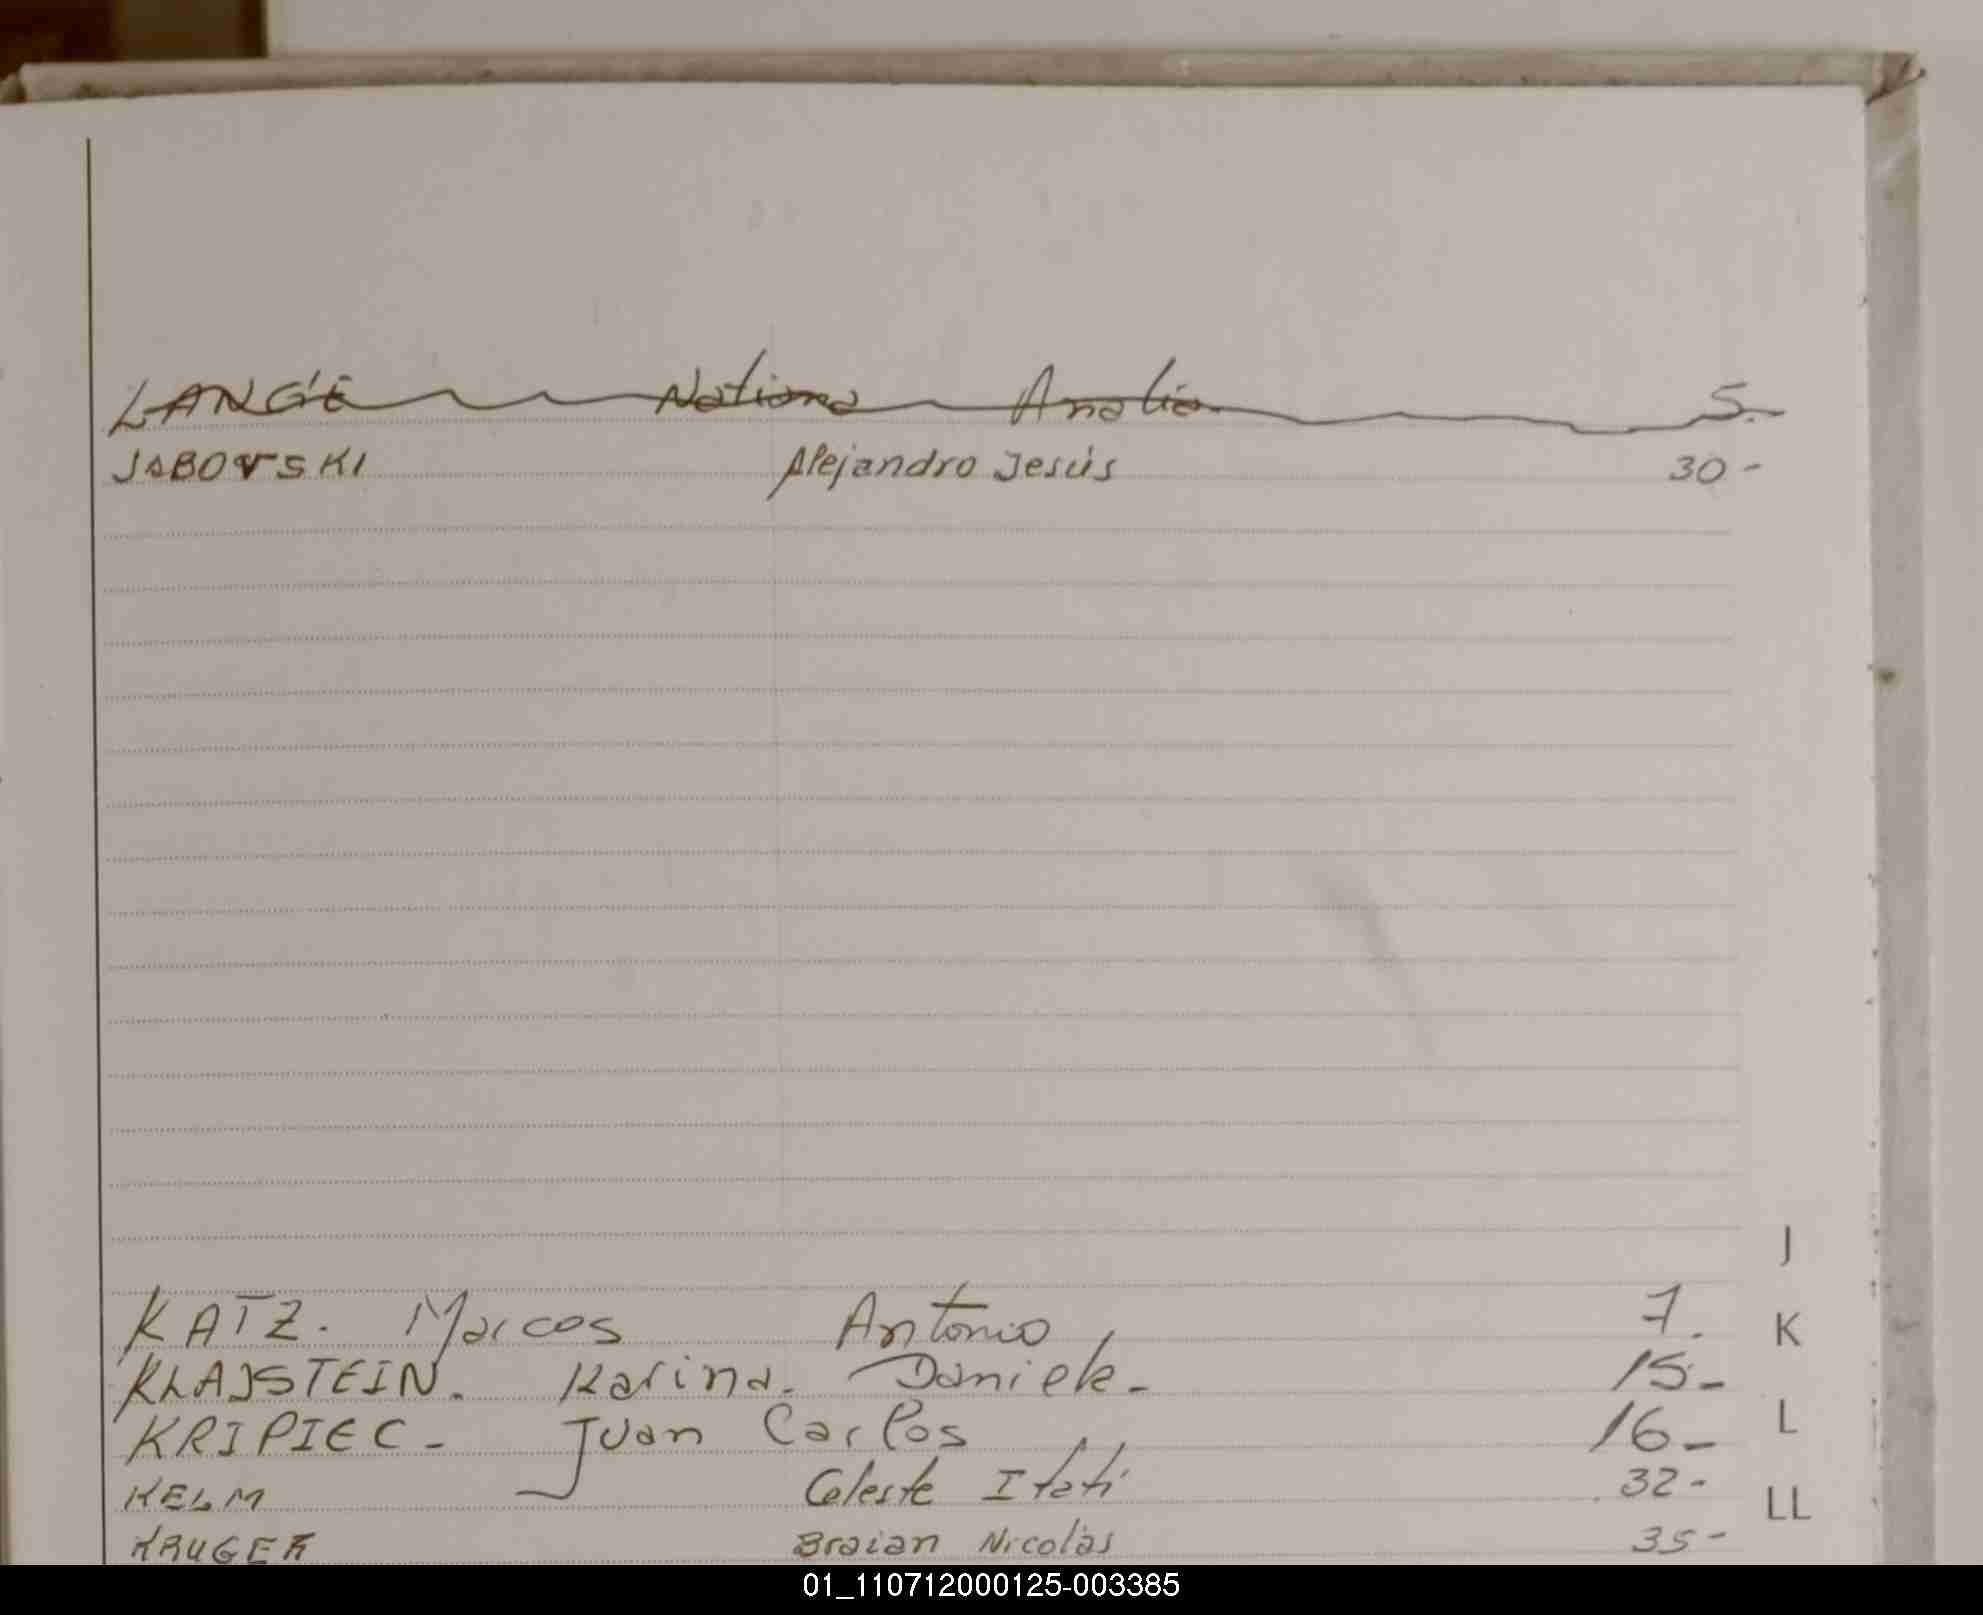 LANGE Natiana Analia. 5.
JABOVSKI Alejandro Jesús 30-
KATZ. Marcos Antonio 7.
KLAJSTEIN. Karina. Daniela- 15-
KRIPIEC- Juan Carlos 16-
KELM Celeste Itatí 32-
KRUGER Braian Nicolás 35-
J
K
L
LL
01_110712000125-003385